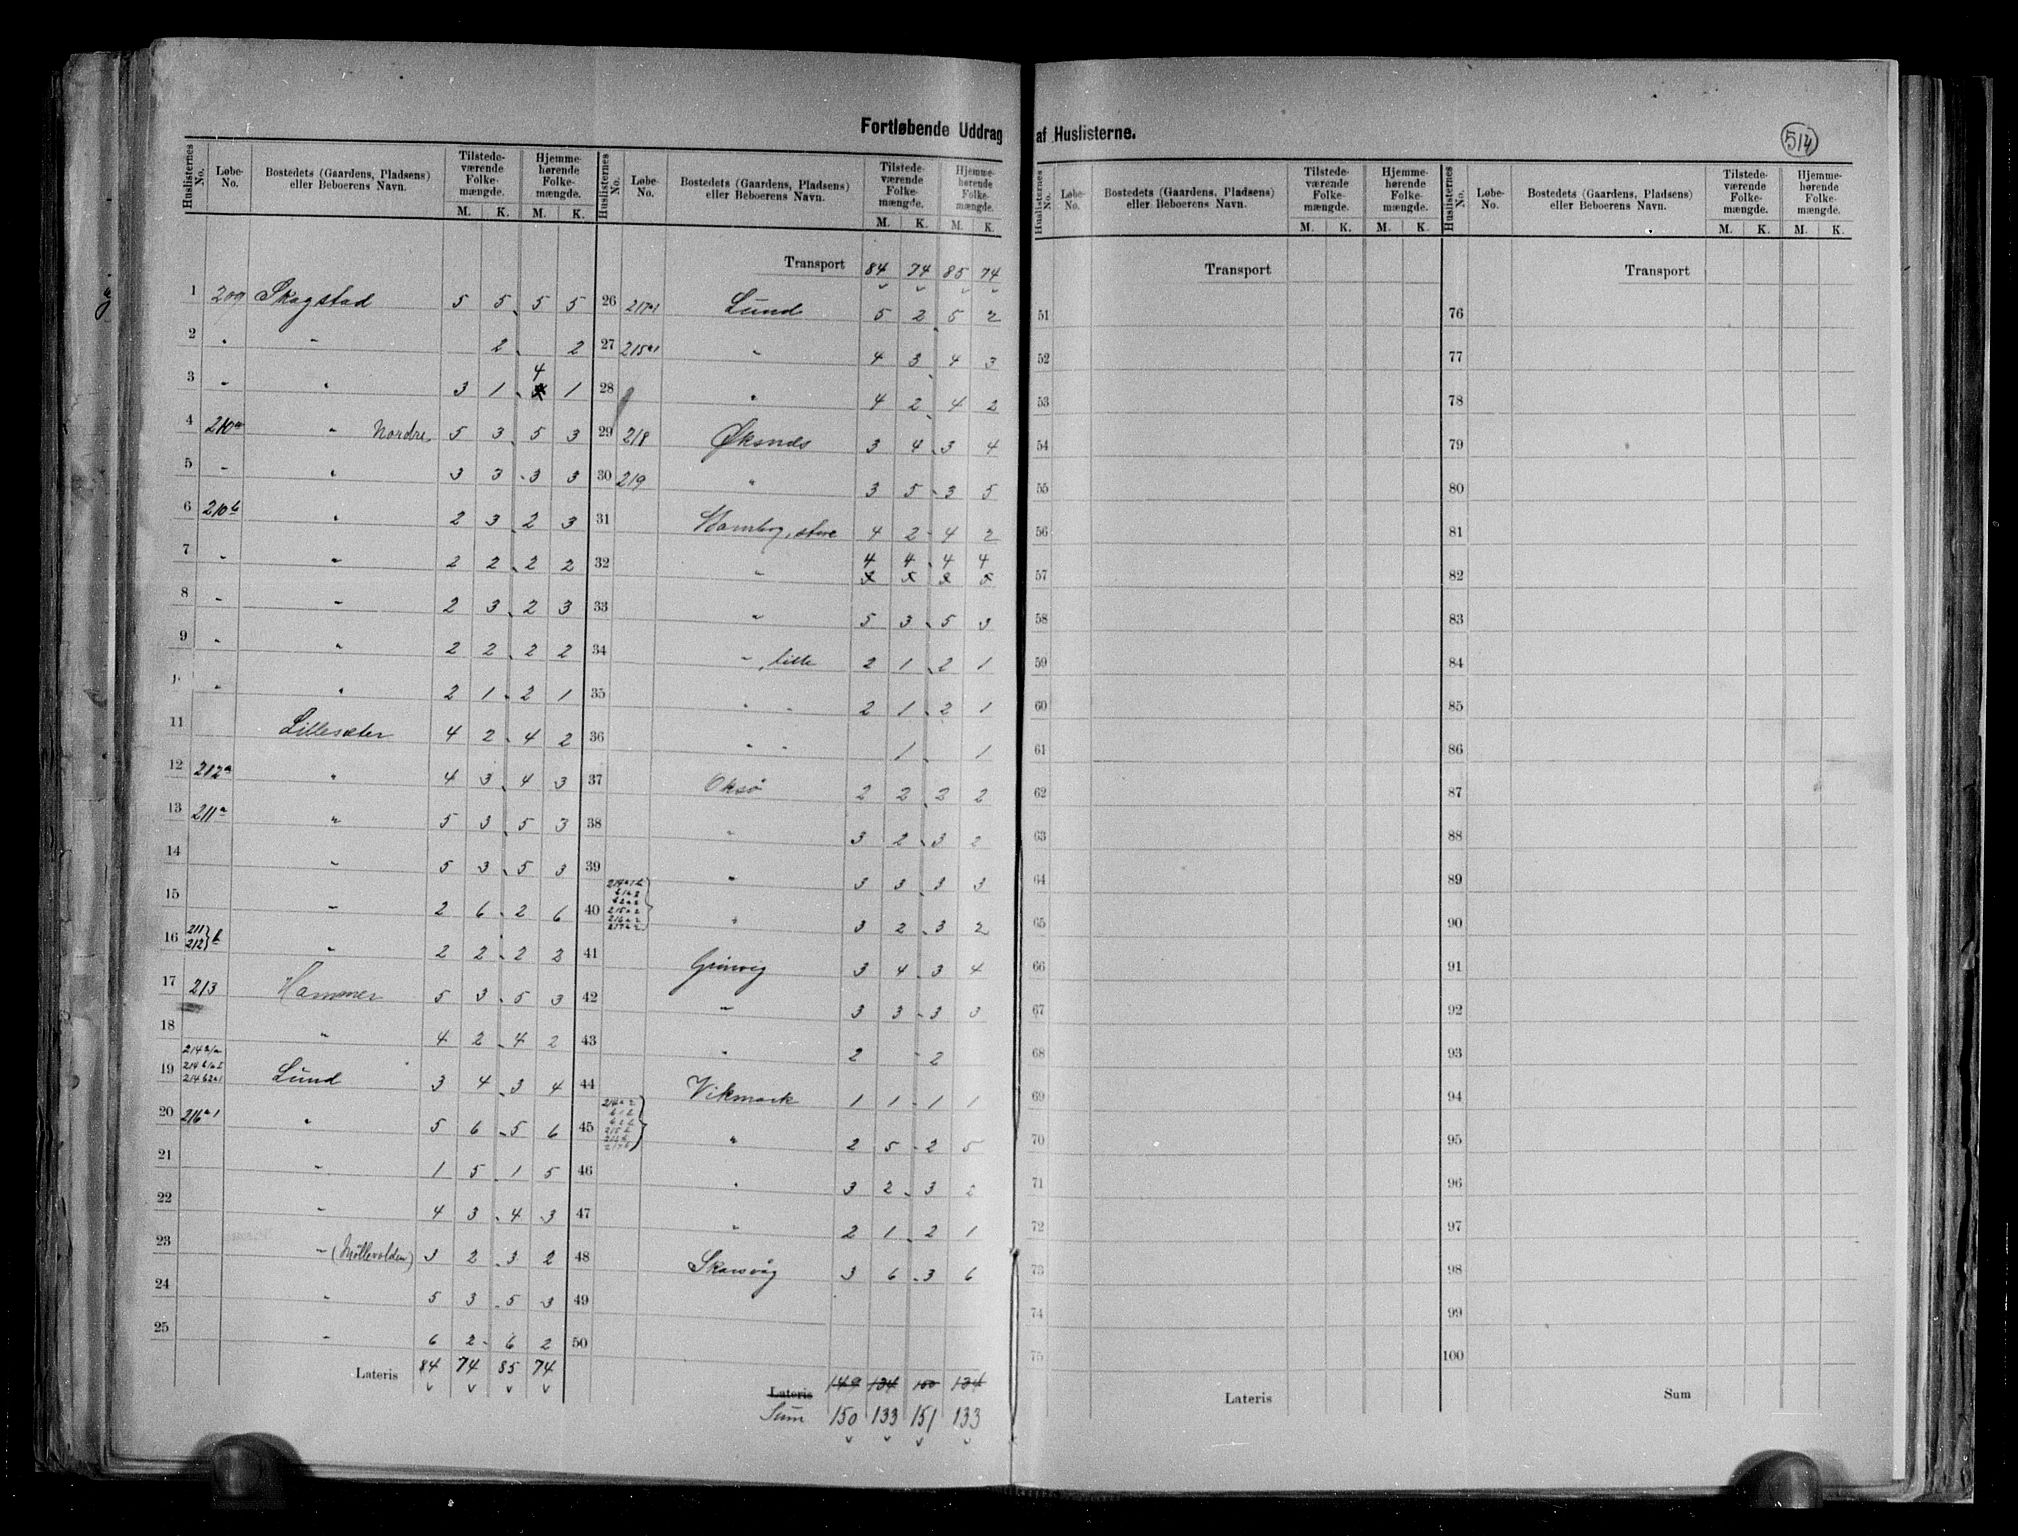 Fortløbende Uddrag af Huslisterne.
514
Huslisternes No. | Løbe-No. | Bostedets (Gaardens, Pladsens) eller Beboerens Navn. | Tilstedeværende Folkemængde. M. K. | Hjemmehørende Folkemængde. M. K.
1 209 Skagstad 5 5 5 5
2 " " 2 2
3 " " 3 1 4 1
4 210a " Nordre 5 3 5 3
5 " " 3 3 3 3
6 210b " 2 3 2 3
7 " " 2 2 2 2
8 " " 2 3 2 3
9 " " 2 2 2 2
1 " " 2 1 2 1
11 Lillesæter 4 2 4 2
12 212a " 4 3 4 3
13 211a " 5 3 5 3
14 " 5 3 5 3
15 " 2 6 2 6
16 211 212 } b " 2 2 2 2
17 213 Hammer 5 3 5 3
18 " 4 2 4 2
19 Lund 3 4 3 4
20 216a1 " 5 6 5 6
21 " 1 5 1 5
22 " 4 3 4 3
23 " (Møllevolden) 3 2 3 2
24 " 5 3 5 3
25 " 6 2 6 2
Lateris 84 74 85 74
Huslisternes No. | Løbe-No. | Bostedets (Gaardens, Pladsens) eller Beboerens Navn. | Tilstedeværende Folkemængde. M. K. | Hjemmehørende Folkemængde. M. K.
Transport 84 74 85 74
26 217a1 Lund 5 2 5 2
27 215a1 " 4 3 4 3
28 " 4 2 4 2
29 218 Øksnes 3 4 3 4
30 219 " 3 5 3 5
31 store 4 2 4 2
32 " 4 4 4 4
33 " 5 3 5 3
34 " lille 2 1 2 1
35 " " 2 1 2 1
36 " " 1 1
37 Oksø 2 2 2 2
38 " 3 2 3 2
39 " 3 3 3 3
40 " 3 2 3 2
41 3 4 3 4
42 " 3 3 3 3
43 " 2 2
44 Vikmark 1 1 1 1
45 " 2 5 2 5
46 " 3 2 3 2
47 " 2 1 2 1
48 Skarsvåg 3 6 3 6
49
50
Lateris 149 134 150 134
Sum 150 133 151 133
Huslisternes No. | Løbe-No. | Bostedets (Gaardens, Pladsens) eller Beboerens Navn. | Tilstedeværende Folkemængde. M. K. | Hjemmehørende Folkemængde. M. K.
Transport
51
52
53
54
55
56
57
58
59
60
61
62
63
64
65
66
67
68
69
70
71
72
73
74
75
Lateris
Huslisternes No. | Løbe-No. | Bostedets (Gaardens, Pladsens) eller Beboerens Navn. | Tilstedeværende Folkemængde. M. K. | Hjemmehørende Folkemængde. M. K.
Transport
76
77
78
79
80
81
82
83
84
85
86
87
88
89
90
91
92
93
94
95
96
97
98
99
100
Sum